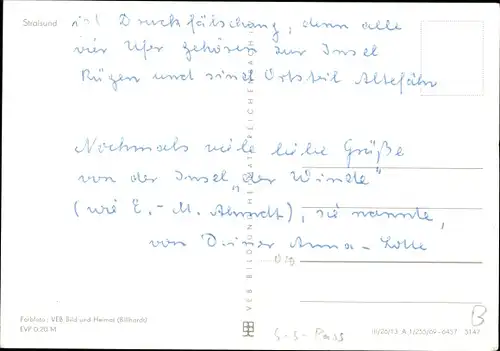 Stralsund
ist Druckfälschung, denn alle
vier Ufer gehören zur Insel
Rügen und sind Ortsteil Altefähr
Nochmals viele liebe Grüße
von der Insel „der Winde"
(wie E.-M. Arndt), sie nannte,
von Deiner Anna-Lotte
VEB BILD UND HEIMAT REICHENBACH I. V.
Farbfoto: VEB Bild und Heimat (Billhardt)
EVP 0.20 M
III/26/13 A 1/255/69 6457 5147
B